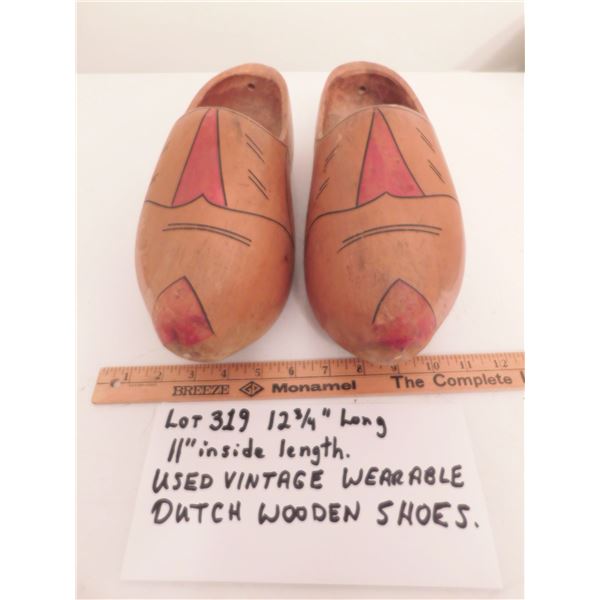 1 2 3 4 5 6 7 8 9 10 11 12
BREEZE Monamel The Complete
LOT 319 12 3/4" Long
11" inside length.
USED VINTAGE WEARABLE
DUTCH WOODEN SHOES.